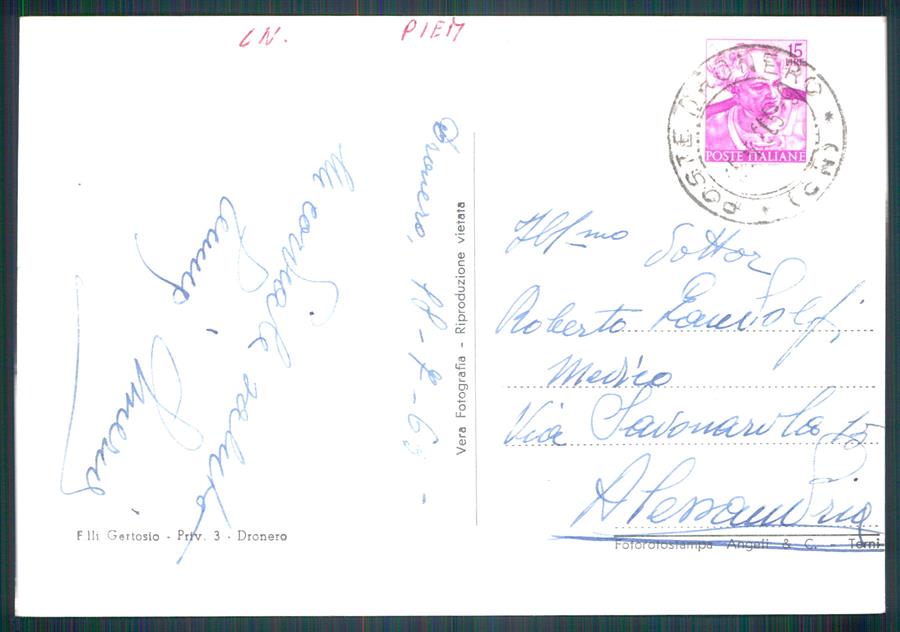 CN. PIEM
15
LIRE
POSTE ITALIANE
POSTE DRONERO * (CN) *
Dronero, 18-7-63 -
Un cordiale saluto
Vera Fotografia - Riproduzione vietata
Ill-mo Dottor
Roberto Landolfi,
Medico
Via Savonarola 15
Alessandria
F.lli Gertosio - Priv. 3 - Dronero
Fotorotostampa Angeli & C. - Terni